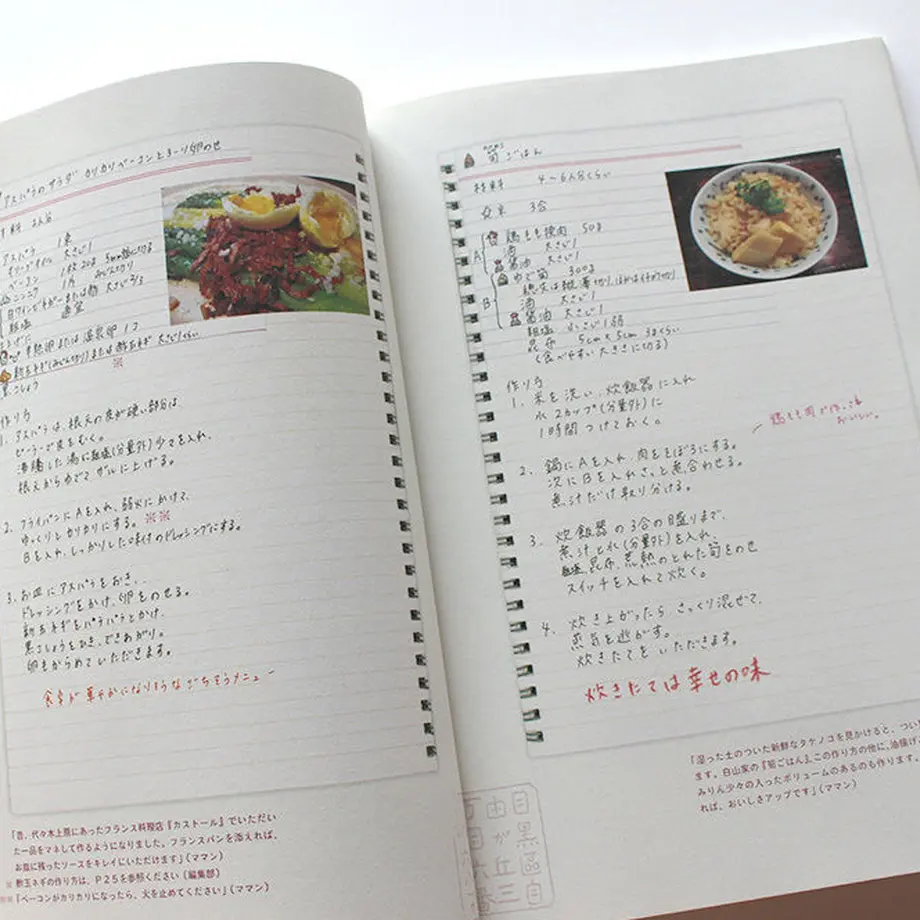 アスパラのサラダ カリカリベーコンととろーり卵のせ
材料 2人分
アスパラ 1束
オリーブオイル 大さじ1
ベーコン 1枚20g 5mm幅に切る
ニンニク 1片 みじん切り
白ワインビネガーまたは酢 大さじ2/3
粗塩 適量
半熟卵または温泉卵 1コ
新玉ネギ(みじん切り)または酢玉ネギ 大さじ1くらい
※
黒こしょう
作り方
1. アスパラは、根元の皮が硬い部分は、
ピーラーで皮をむく。
沸騰した湯に粗塩(分量外)少々を入れ、
根元からゆでてザルに上げる。
2. フライパンにAを入れ、弱火にかけて、
ゆっくりとカリカリにする。※※
Bを入れ、しっかりした味付のドレッシングにする。
3. お皿にアスパラをおき、
ドレッシングをかけ、卵をのせる。
新玉ネギをパラパラとかけ、
黒こしょうをひき、できあがり。
卵をからめていただきます。
食卓が華やかになりそうなごちそうメニュー
「昔、代々木上原にあったフランス料理店『カストール』でいただい
た一品をマネして作るようになりました。フランスパンを添えれば、
お皿に残ったソースをキレイにいただけます」(ママン)
※ 酢玉ネギの作り方は、P25を参照ください(編集部)
※※「ベーコンがカリカリになったら、火を止めてください」(ママン)
筍ごはん
材料 4〜6人分くらい
お米 3合
A
鶏もも挽肉 50g
油 大さじ1
醤油 大さじ1
B
ゆで筍 300g
穂先は縦薄切り、ほかは仔切り
油 大さじ1
醤油 大さじ1
粗塩 小さじ1弱
昆布 5cm×5cm 3まいくらい
(食べやすい大きさに切る)
作り方
1. 米を洗い、炊飯器に入れ
水2カップ(分量外)に
1時間つけておく。
鶏もも肉で作っても
おいしい。
2. 鍋にAを入れ、肉をそぼろにする。
次にBを入れ、さっと煮合わせる。
煮汁だけ取り分ける。
3. 炊飯器の3合の目盛りまで、
煮汁と水(分量外)を入れ、
粗塩、昆布、荒熱のとれた筍をのせ
スイッチを入れて炊く。
4. 炊き上がったら さっくり混ぜて、
蒸気を逃がす。
炊きたてを いただきます。
炊きたては幸せの味
「湿った土のついた新鮮なタケノコを見かけると、つい
ます。白山家の『筍ごはん』、この作り方の他に、油揚げ
みりん少々の入ったボリュームのあるのも作ります。
れば、おいしさアップです」(ママン)
目黒区自
由が丘三